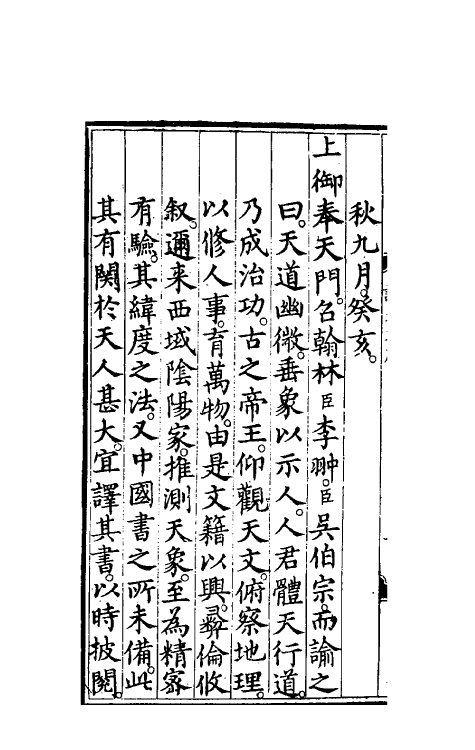 秋九月。癸亥。
上御奉天門。召翰林臣李翀。臣吳伯宗。而諭之
曰。天道幽微。垂象以示人。人君體天行道。
乃成治功。古之帝王。仰觀天文。俯察地理。
以修人事。育萬物。由是文籍以興。彞倫攸
叙。邇来西域陰陽家。推測天象。至為精密
有驗。其緯度之法。又中國書之所未備。此
其有關於天人甚大。宜譯其書。以時披閱。